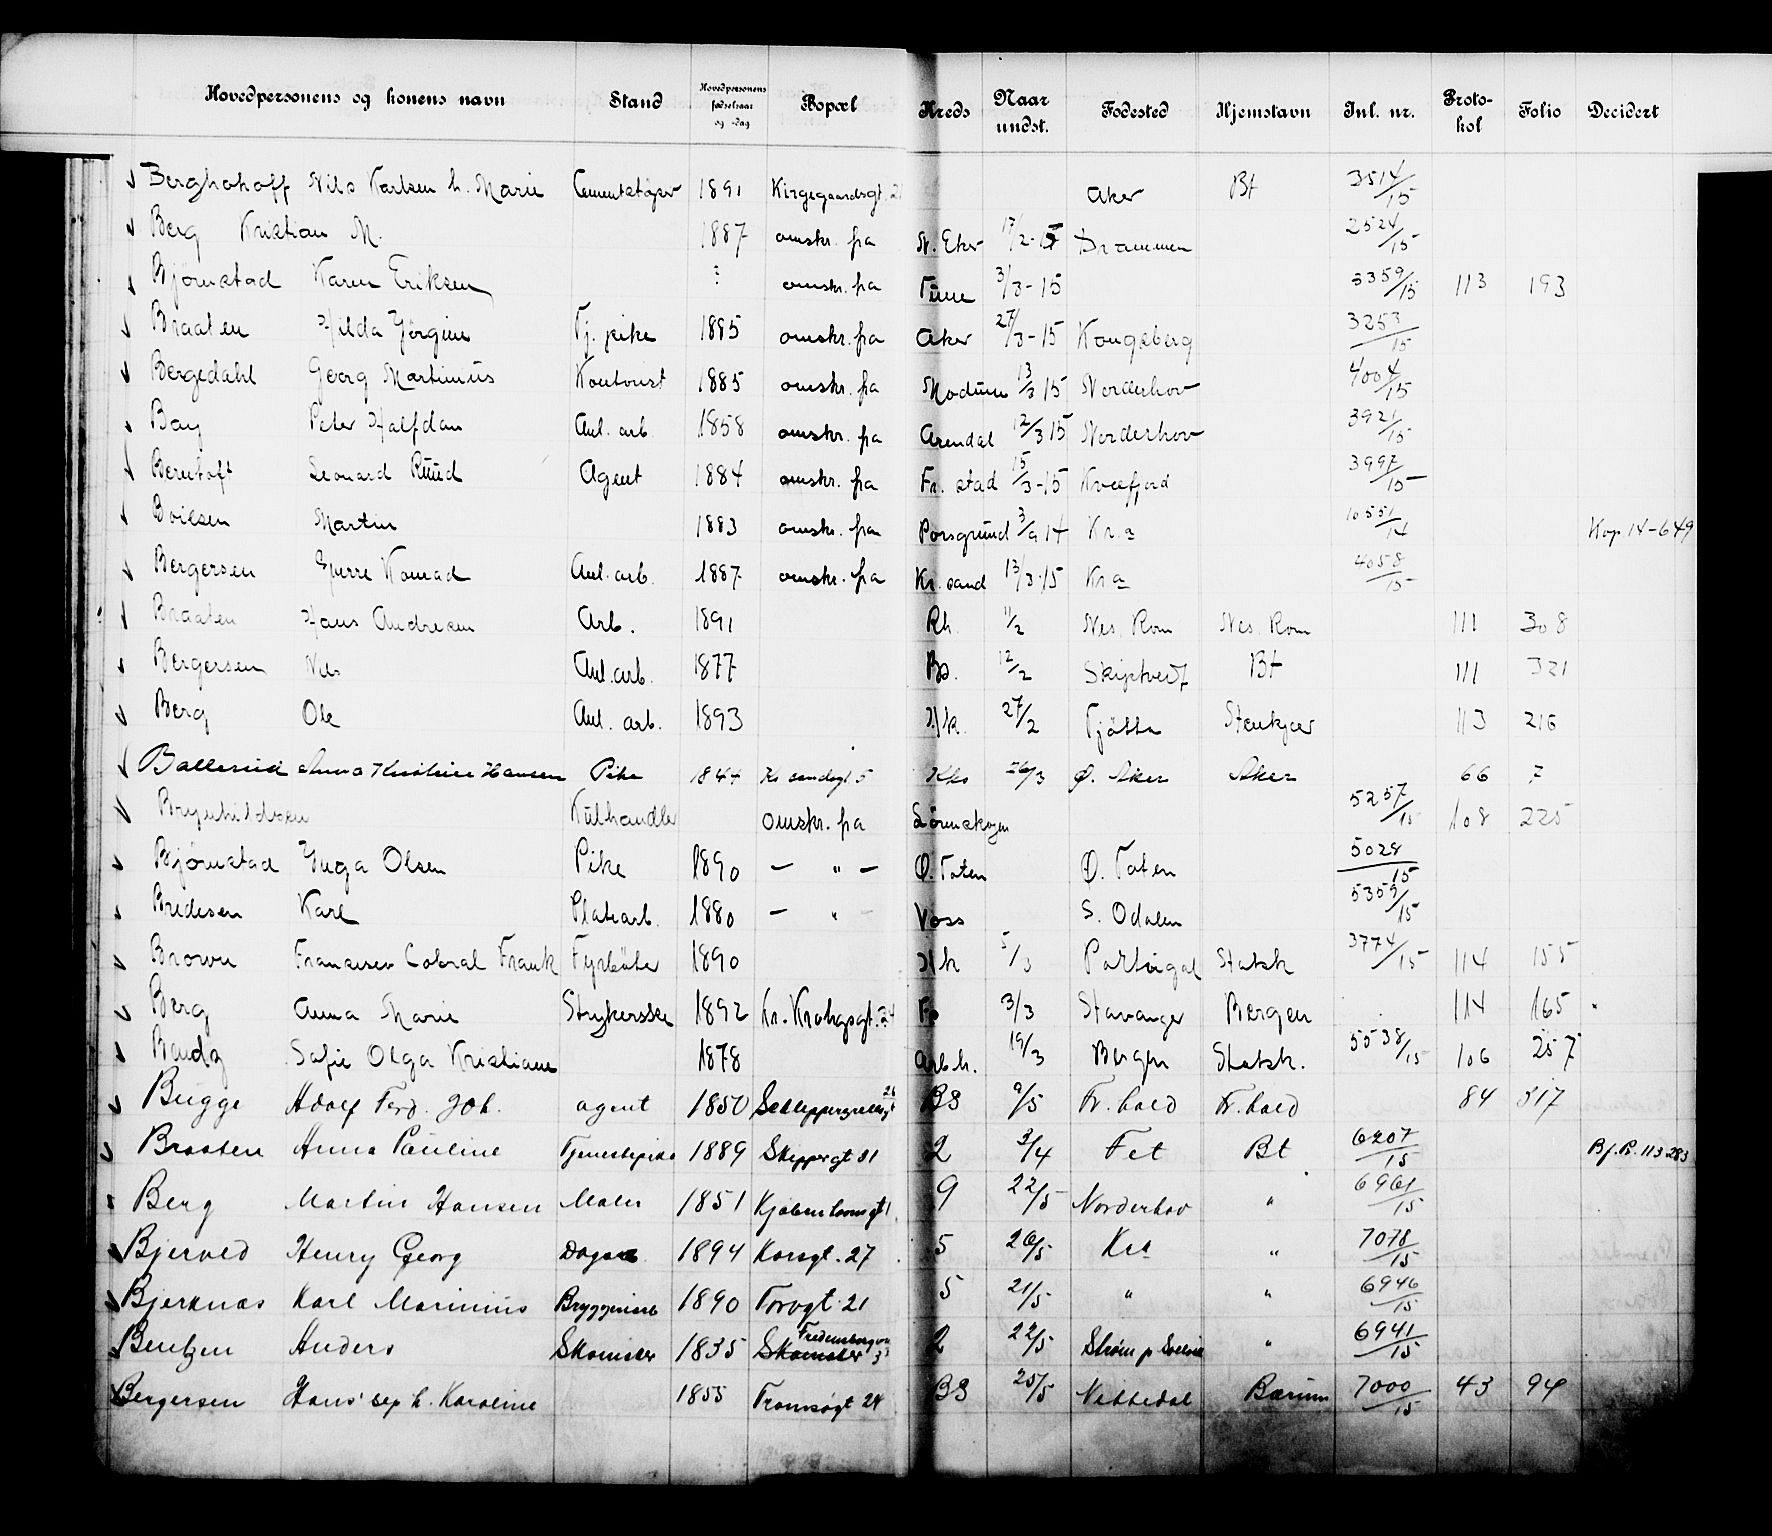 Hovedpersonens og konens navn Stand Hovedpersonens fødselsaar og -dag Bopæl Kreds Naar undst. Fødested Hjemstavn Inl. nr. Protokol Folio Decidert
Berghohoff Nils Karlsen h. Marie Cementstøper 1891 Kirgegaardsgt. 21 Aker Bt 3514/15
Berg Kristian M. 1887 omskr. fra N. Eker 17/2-15 Drammen 2524/15
Bjørnstad Karen Eriksen ? omskr. fra Tune 3/3-15 3359/15 113 193
Braaten Hilda Jørgine Tj. pike 1895 omskr. fra Aker 27/3-15 Kongsberg 3253/15
Bergedahl Georg Martinius Kontorist 1885 omskr. fra Modum 13/3 15 Norderhov 4004/15
Bay Peter Halfdan Anl. arb 1858 omskr. fra Arendal 12/3 15 Norderhov 3921/15
Berntoft Leonard Ruud Agent 1884 omskr. fra Fr. stad 15/3-15 Kvæfjord 3997/15
Boilsen Martin 1883 omskr. fra Porsgrund 3/9 14 Kr.a 10551/14 Kop 14-649
Bergersen Sjurre Konrad Anl. arb. 1887 omskr. fra Kr. sand 13/3-15 Kra 4058/15
Braaten Hans Andresen Arb. 1891 Rh. 11/2 Nes, Rom Nes, Rom 111 308
Bergersen Nils Anl. arb. 1877 Bs. 12/2 Skiptvedt Bt 111 321
Berg Ole Anl. arb. 1893 Hk. 27/2 Tjøtta Stenkjær 113 216
Ballerud Anna Kristine Hansen Pike 1844 Kr sandsgt 5 Kks 26/3 Ø. Aker Aker 66 7
Brynhildsen Kulhandler omskr. fra Lörenskogen 5257/15 108 225
Bjørnstad Inga Olsen Pike 1890 — " — Ø. Toten Ø. Toten 5028/15
Bredesen Karl Platearb. 1880 — " — Voss S. Odalen 5359/15
Brown Francisco Cabral Frank Fyrbøter 1890 Hk 5/3 Portugal Statsk 3774/15 114 155
Berg Anna Marie Strykerske 1892 Kr. Krohgsgt. 34 Fp 3/3 Stavanger Bergen 114 165
Bandz Sofie Olga Kristiane 1878 Arb.h. 19/3 Bergen Statsk. 5538/15 106 257
Bugge Adolf Ferd. Joh. agent 1850 BS 9/5 Fr. hald Fr. hald 84 517
Braaten Anna Pauline Tjenestepike 1889 Skippergt 31 2 3/4 Fet Bt 6207/15 Bf. P. 113 283
Berg Martin Hansen Maler 1851 Kjøbenhavnsgt 1 9 22/5 Norderhov " 6961/15
Bjerved Henry Georg 1894 Korsgt. 27 5 26/5 Kra " 7078/15
Bjerknæs Karl Marinius Bryggeriarb 1890 Torvgt. 21 5 21/5 " " 6946/15
Bentzen Anders Skomaker 1835 Skomaker 33 2 22/5 Strøm p Svelvik " 6941/15
Bergersen Hans' sep h. Karoline 1855 Tromsøgt 24 BS 25/5 Nittedal Bærum 7000/15 43 94